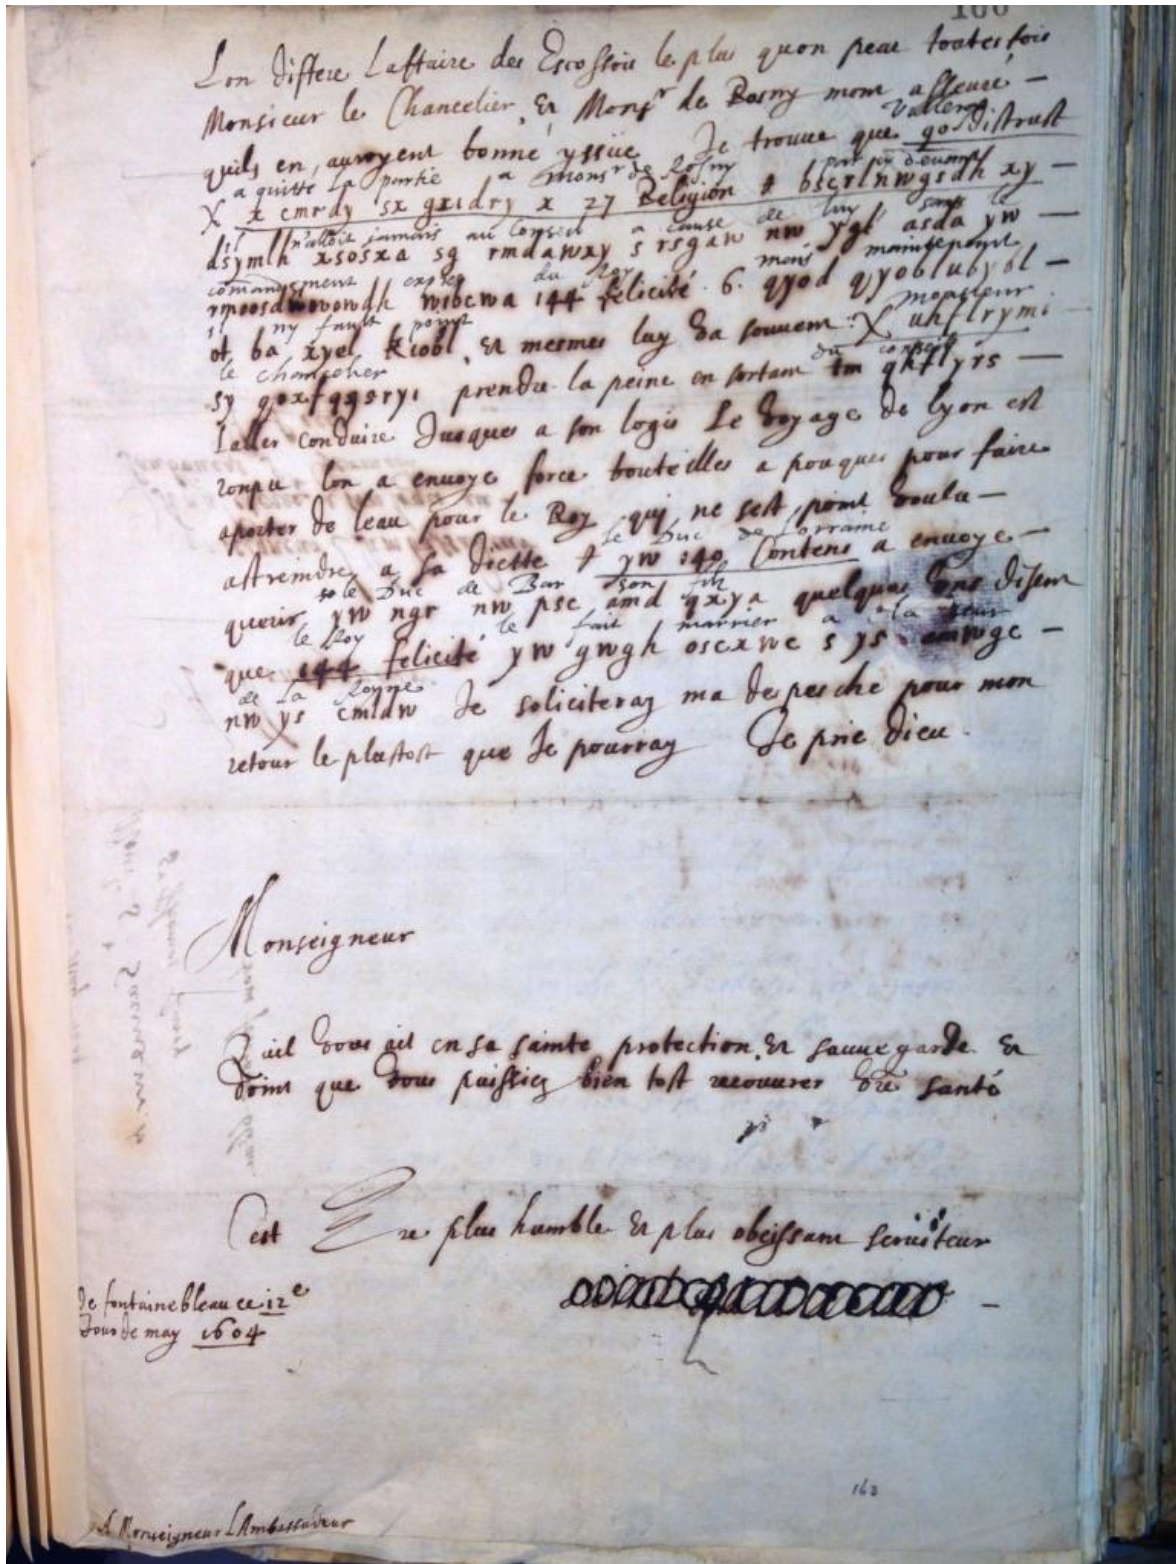 166
Lon differe Laffaire des Escossois le plus quon peut toutesfois
Monsieur le Chancelier, Et Monsr de Rosny mont asseuré —
Valleran
quils en auroyent bonne yssue Je trouve que go Distrust
a quitte la partie a Monsr de Rosny par cy devant
X x cmrdy sx gxidry x 27 Religion bscrlnwgsdh xy —
il n'alloit jamais au conseil a cause de luy sans le
dsymlh xsosxa sg rmdawxy s rsgaw nw ygl asda yw —
commandement expres du Roy mais maintenant
wibcwa 144 felicité 6. qyod qyoblubybl —
il ny fault point monsieur
ot ba xyel kiobl, Et mesmes luy Va souvent X uhflrymi
le chancelier du conseil
sy qoxfqgsryi prendre la peine en sortant tm qhflyrs —
Laller conduire Jusques a son logis Le Voyage de Lyon est
rompu lon a envoye force bouteilles a pougues pour faire
aporter de leau pour le Roy qui ne sest point Voulu —
le Duc de Lorraine
astreindre a sa diette yw 140 Contens a envoye —
le Duc de Bar son filz
querir yw ngr nw psc amd qxya quelques Uns Disent
le Roy le fait marrier a la seur
que 144 felicité yw gwgh oscxwc s ys amwgc —
de la Royne
nw ys cmldw Je soliciteray ma depesche pour mon
retour le plustost que Je pourray Je prie Dieu
Monseigneur
Quil Vous ait en sa sainte protection, Et sauvegarde Et
Doint que Vous puissiez bien tost recouvrer Vre santé
Cest Vre plus humble Et plus obeissant serviteur
De fontainebleau ce 12e
Jour de may 1604
163
A Monseigneur LAmbassadeur